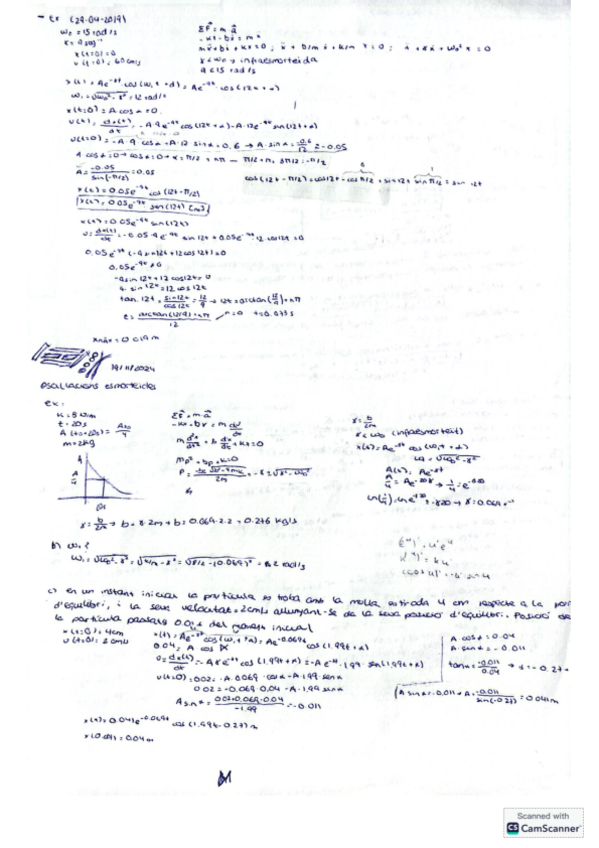 - Ex (29-04-2019)
ω₀ = 15 rad/s
x(t=0)=0
v(t=0)=60cm/s
ΣF = m a
-kx-bẋ = mẍ
mẍ+bẋ+kx=0; ẍ+b/m ẋ+k/m x=0;
γ<ω₀ → infraesmorteïda
9<15 rad/s
x(t)=Ae^-γt cos(ω₁t+α)=Ae^-9t cos(12t+α)
ω₁=√ω₀²-γ²=12 rad/s
x(t=0)=A cos α=0
v(t)=dx(t)/dt=-A9e^-9t cos(12t+α)-A12e^-9t sin(12t+α)
v(t=0)=-A·9 cosα-A·12 sinα=0.6 → A sinα=-0.6/12=-0.05
A cosα=0→cosα=0→α=π/2+nπ
A=-0.05/sin(-π/2)=0.05
cos(12t-π/2)=cos12t·cosπ/2+sin12t sinπ/2=sin 12t
x(t)=0.05e^-9t cos(12t-π/2)
x(t)=0.05e^-9t sin(12t) [m]
x(t)=0.05e^-9t sin(12t)
v=dx(t)/dt=-0.05·9e^-9t sin12t+0.05e^-9t 12 cos12t=0
0.05e^-9t(-9 sin12t+12cos12t)=0
0.05e^-9t≠0
-9sin12t+12cos12t=0
9 sin12t=12cos12t
tan12t=sin12t/cos12t=12/9→12t=arctan(12/9)+nπ
t=arctan(12/9)+nπ/12
n=0 t=0.077s
xmàx=0.019m
19/11/2024
oscil·lacions esmorteïdes
ex:
k=8N/m
t=20s
A(t=20s)=A₀/4
m=2kg
ΣF=ma
-kx-bv=m dv/dt
m d²x/dt²+b dx/dt+kx=0
mp²+bp+k=0
p=-b±√b²-4mk/2m=-γ±√γ²-ω₀²
γ=b/2m
γ<ω₀ (infraesmorteït)
x(t)=Ae^-γt cos(ω₁t+α)
ω₁=√ω₀²-γ²
A(t)=Ae^-γt
A/4=Ae^-20γ→1/4=e^-20γ
ln(1/4)=ln e^-20γ=-γ20→γ=0.069 s⁻¹
γ=b/2m→b=γ2m→b=0.069·2·2=0.276 kg/s
b) ω₁?
ω₁=√ω₀²-γ²=√k/m-γ²=√8/2-(0.069)²
c) en un instant inicial la partícula es troba amb la molla estirada 4 cm respecte a la
d'equilibri, i la seva velocitat=2cm/s allunyant-se de la seva posició d'equilibri. Posició de
la partícula passats 0.01s del moment inicial
x(t=0)=4cm
v(t=0)=2cm/s
x(t)=Ae^-γt cos(ω₁t+α)=Ae^-0.069t cos(1.99t+α)
0.04=A cosα
v(t=0)=0.02=-A·0.069·cosα-A·1.99 sinα
0.02=-0.069·0.04-A·1.99 sinα
A sinα=0.02+0.069·0.04/-1.99=-0.011
A cosα=0.04
A sinα=-0.011
tanα=-0.011/0.04→α=-0.27
A sinα=-0.011→A=-0.011/sin(-0.27)=0.041m
x(t)=0.041e^-0.069t cos(1.99t-0.27)m
x(0.01)=0.04m
Scanned with
CS CamScanner